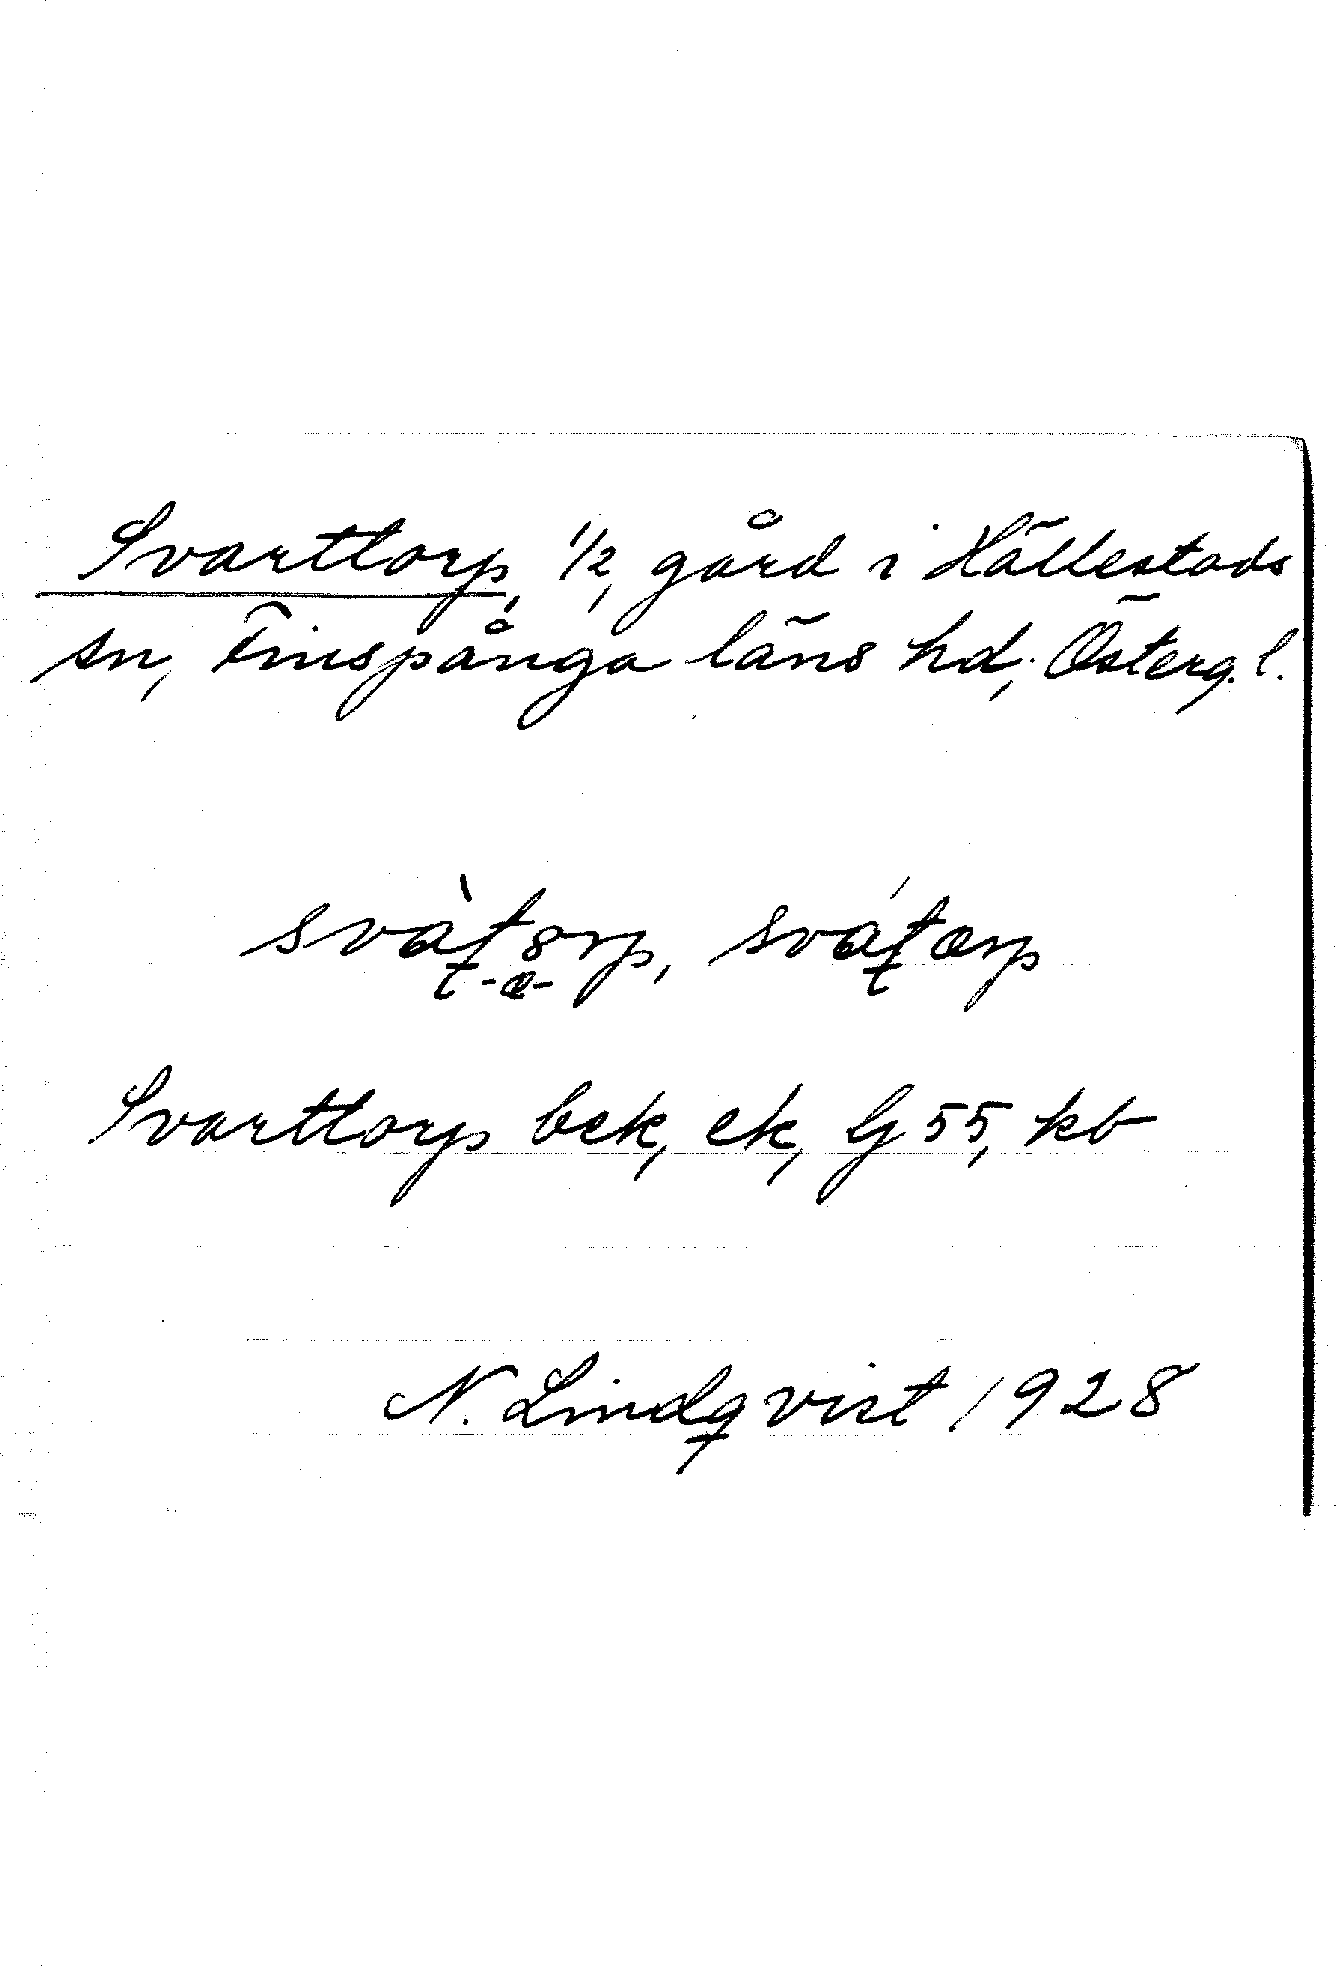 Svarttorp, 1/2, gård i Hällestads
sn, Finspånga läns hd, Österg. l.
svàt̠8rp, svát̠ærp
t -æ-
Svarttorp bek, ek, G 55, kb
N. Lindqvist 1928